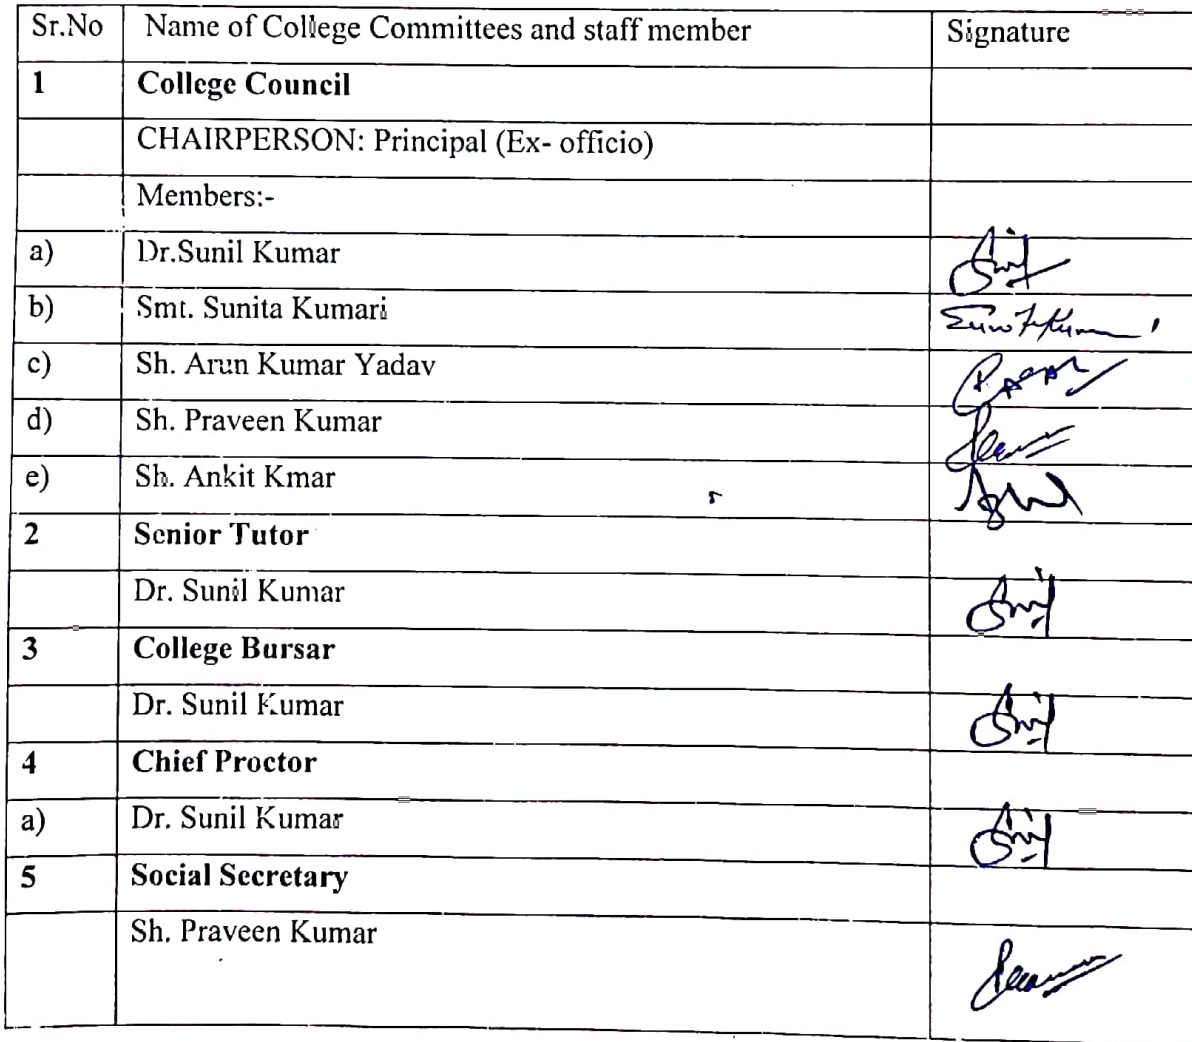 Sr.No Name of College Committees and staff member Signature
1 College Council
CHAIRPERSON: Principal (Ex- officio)
Members:-
a) Dr.Sunil Kumar
b) Smt. Sunita Kumari
c) Sh. Arun Kumar Yadav
d) Sh. Praveen Kumar
e) Sh. Ankit Kmar
2 Senior Tutor
Dr. Sunil Kumar
3 College Bursar
Dr. Sunil Kumar
4 Chief Proctor
a) Dr. Sunil Kumar
5 Social Secretary
Sh. Praveen Kumar